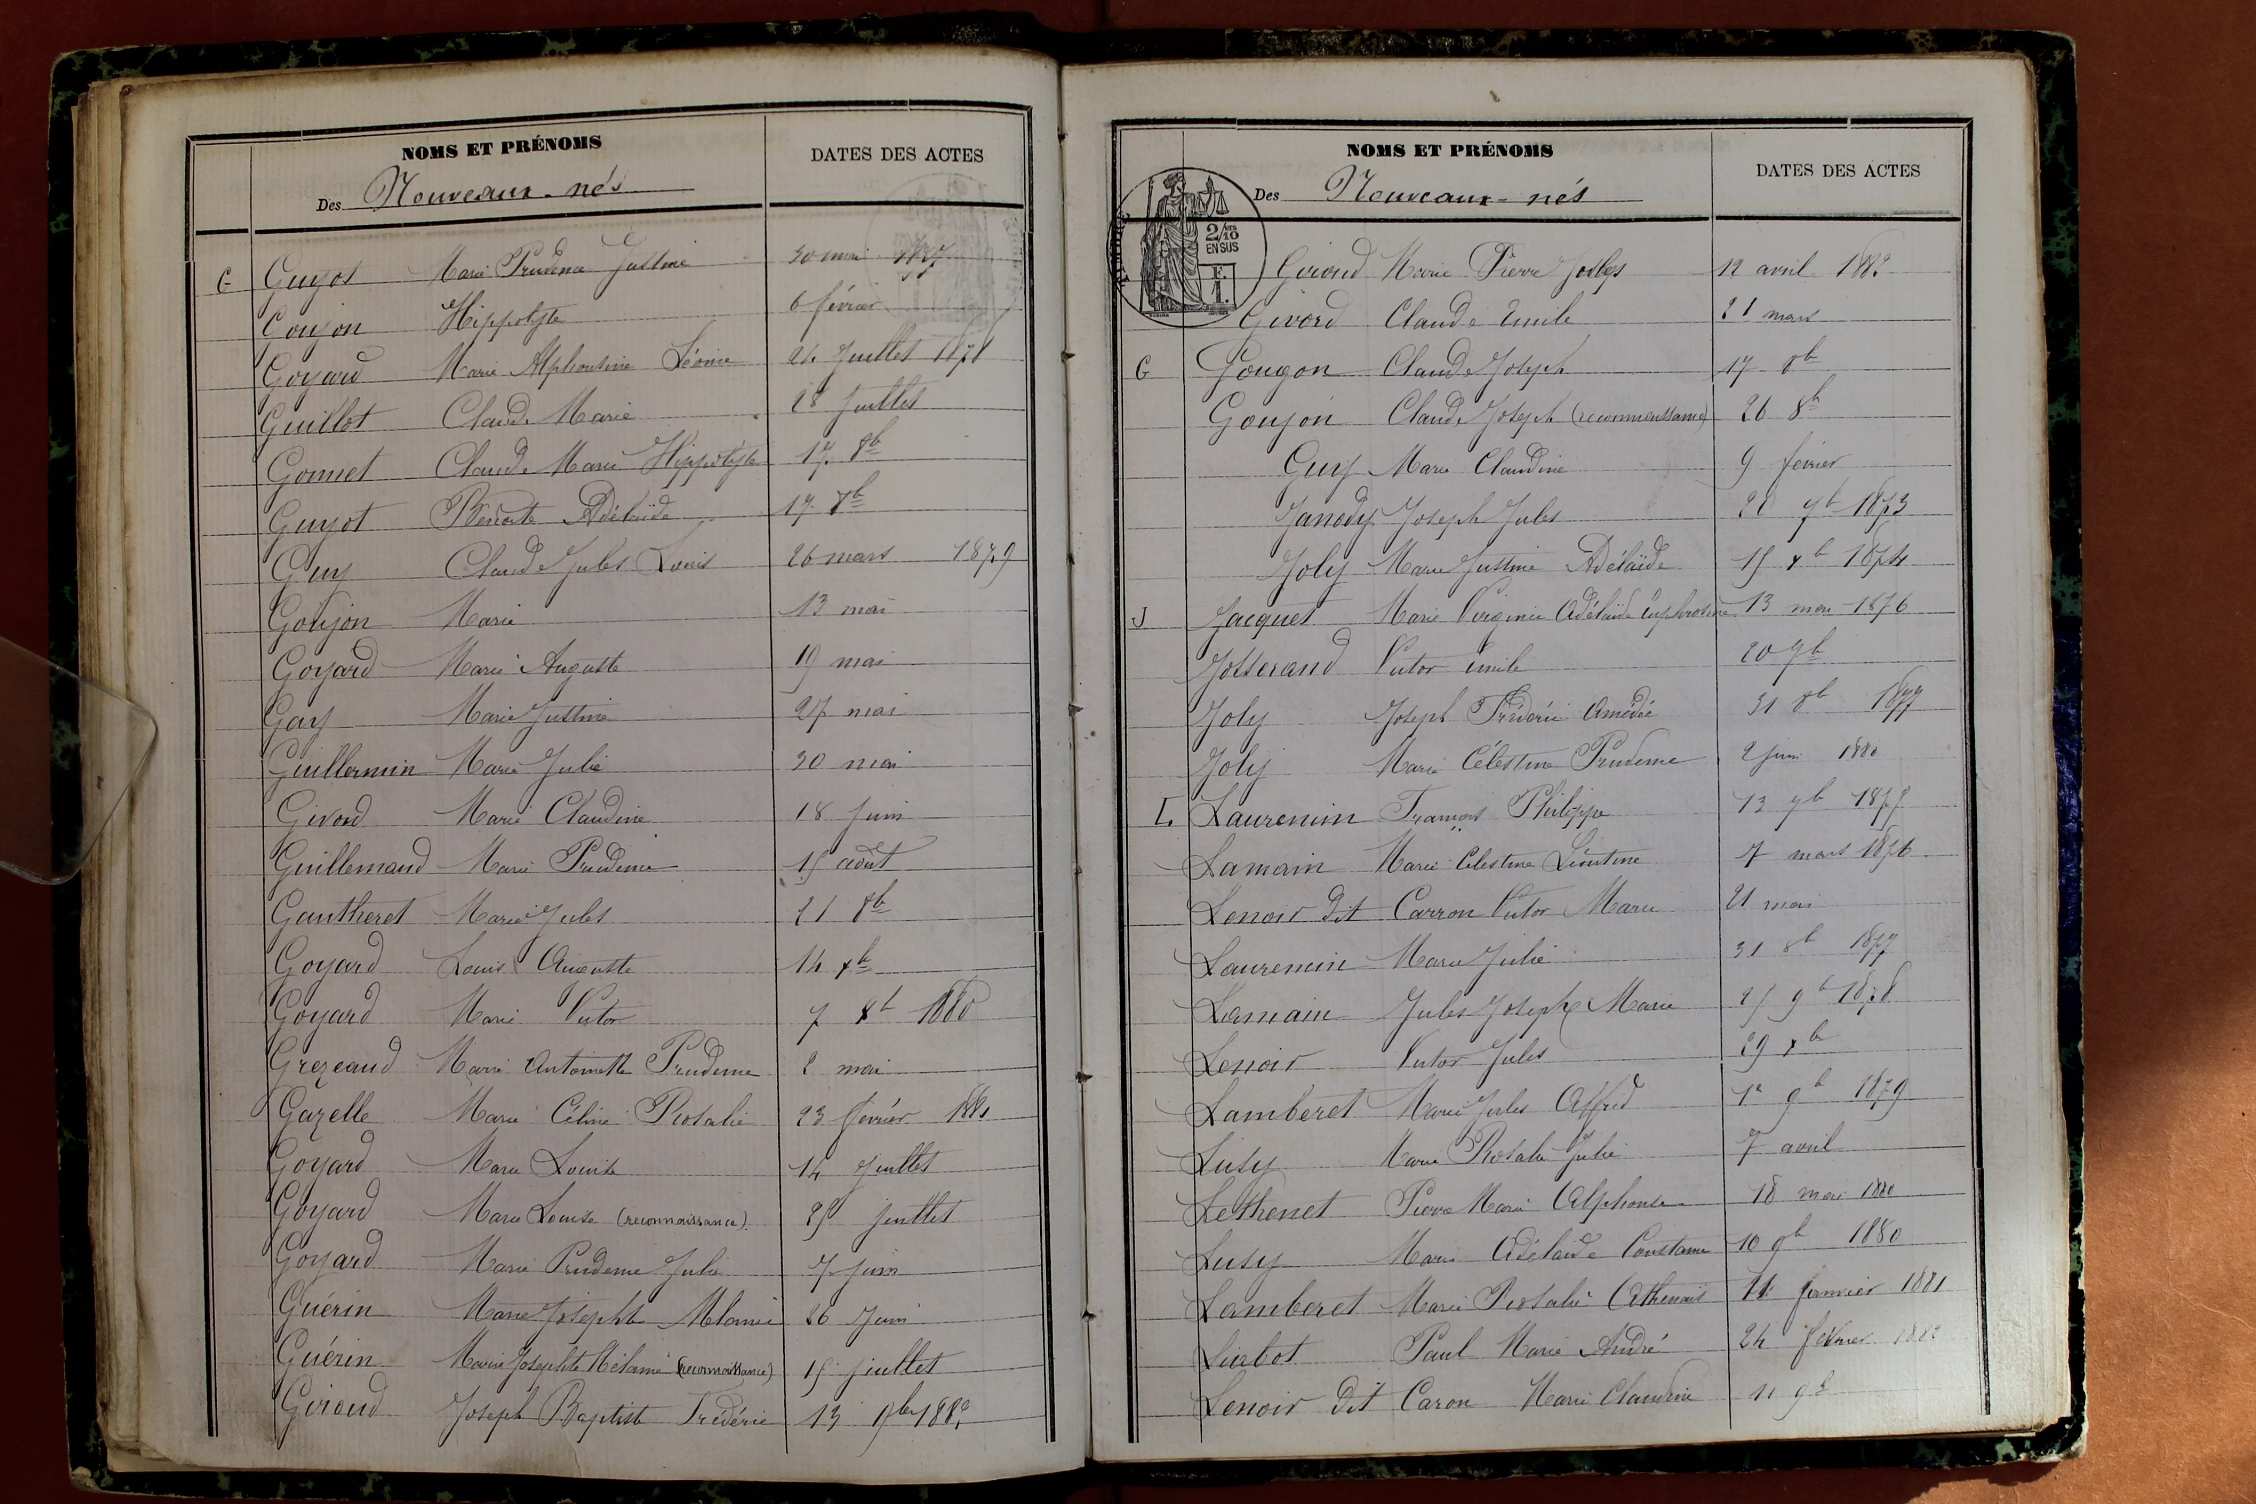 NOMS ET PRÉNOMS
DATES DES ACTES
Des Nouveaux-nés
G Guyot Marie Prudence Justine 30 mai 1877
Goujon Hippolyte 6 février
Goyard Marie Alphonsine Léonie 24 Juillet 1878
Guillot Claude Marie 28 Juillet
Gonnet Claude Marie Hippolyte 17 8b
Guyot Benoite Adélaïde 17 7b
Guy Claude Jules Louis 26 mars 1879
Goujon Marie 13 mai
Goyard Marie Auguste 19 mai
Gay Marie Justine 27 mai
Guillermin Marie Julie 30 mai
Givord Marie Claudine 18 Juin
Guillemaud Marie Prudence 15 août
Gautheret Marie Jules 21 8b
Goyard Louis Auguste 14 xb
Goyard Marie Victor 7 xb 1880
Grezeaud Marie Antoinette Prudence 2 mai
Gazelle Marie Céline Rosalie 23 février 1881
Goyard Marie Louise 14 Juillet
Goyard Marie Louise (reconnaissance) 25 juillet
Goyard Marie Prudence Julie 7 juin
Guérin Marie Josephte Mélanie 26 Juin
Guérin Marie Josephte Mélanie (reconnaissance) 15 juillet
Giroud Joseph Baptiste Frédéric 13 9bre 1882
NOMS ET PRÉNOMS
DATES DES ACTES
Des Nouveaux-nés
2/10
EN SUS
F.
1.
Giroud Marie Pierre Joseph 12 avril 1882
Givord Claude Emile 21 mars
G Gougon Claude Joseph 17 8b
Goujon Claude Joseph (reconnaissance) 26 8b
Guy Marie Claudine 9 février
Janody Joseph Jules 28 9b 1873
Joly Marie Justine Adélaïde 15 xb 1874
J Jacquet Marie Virginie Adélaïde Euphrosine 13 mai 1876
Josserand Victor Emile 20 9b
Joly Joseph Frédéric Amédée 31 8b 1877
Joly Marie Célestine Prudence 2 juin 1880
L Laurencin François Philippe 13 9b 1875
Lamain Marie Célestine Léontine 7 mars 1876
Lenoir dit Carron Victor Marie 21 mai
Laurencin Marie Julie 31 8b 1877
Lamain Jules Joseph Marie 25 9b 1878
Lenoir Victor Jules 29 xbre
Lamberet Marie Jules Alfred 12 9b 1879
Lusy Marie Rosalie Julie 7 avril
Lethenet Pierre Marie Alphonse 18 mai 1880
Lusy Marie Adélaïde Constance 10 9b 1880
Lamberet Marie Rosalie Athénaïs 11 janvier 1881
Liabot Paul Marie André 24 février 1882
Lenoir dit Caron Marie Claudine 11 9b